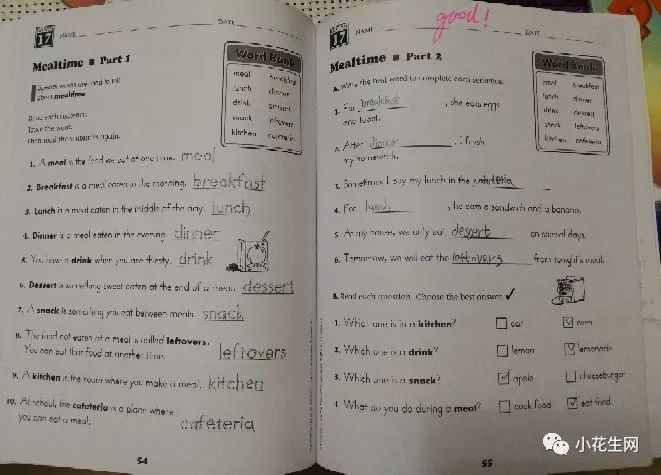 17
NAME
DATE
Mealtime ■ Part 1
Special words are used to tell
about mealtime.
Read each sentence.
Trace the word.
Then read the sentences again.
Word Bank
meal breakfast
lunch dinner
drink dessert
snack leftovers
kitchen cafeteria
1. A meal is the food we eat at one time. meal
2. Breakfast is a meal eaten in the morning. breakfast
3. Lunch is a meal eaten in the middle of the day. lunch
4. Dinner is a meal eaten in the evening. dinner
5. You have a drink when you are thirsty. drink
6. Dessert is something sweet eaten at the end of a meal. dessert
7. A snack is something you eat between meals. snack
8. The food not eaten at a meal is called leftovers.
You can eat that food at another time. leftovers
9. A kitchen is the room where you make a meal. kitchen
10. At school, the cafeteria is a place where
you can eat a meal. cafeteria
54
good!
17
NAME
DATE
Mealtime ■ Part 2
A. Write the best word to complete each sentence.
Word Bank
meal breakfast
lunch dinner
drink dessert
snack leftovers
kitchen cafeteria
1. For breakfast, she eats eggs
and toast.
2. After dinner, I finish
my homework.
3. Sometimes I buy my lunch in the cafeteria
4. For lunch, he eats a sandwich and a banana.
5. At my house, we only eat desert on special days.
6. Tomorrow, we will eat the leftovers from tonight's meal.
B. Read each question. Choose the best answer. ✓
1. Which one is in a kitchen? car ✓ oven
2. Which one is a drink? lemon ✓ lemonade
3. Which one is a snack? ✓ apple cheeseburger
4. What do you do during a meal? cook food ✓ eat food
55
小花生网